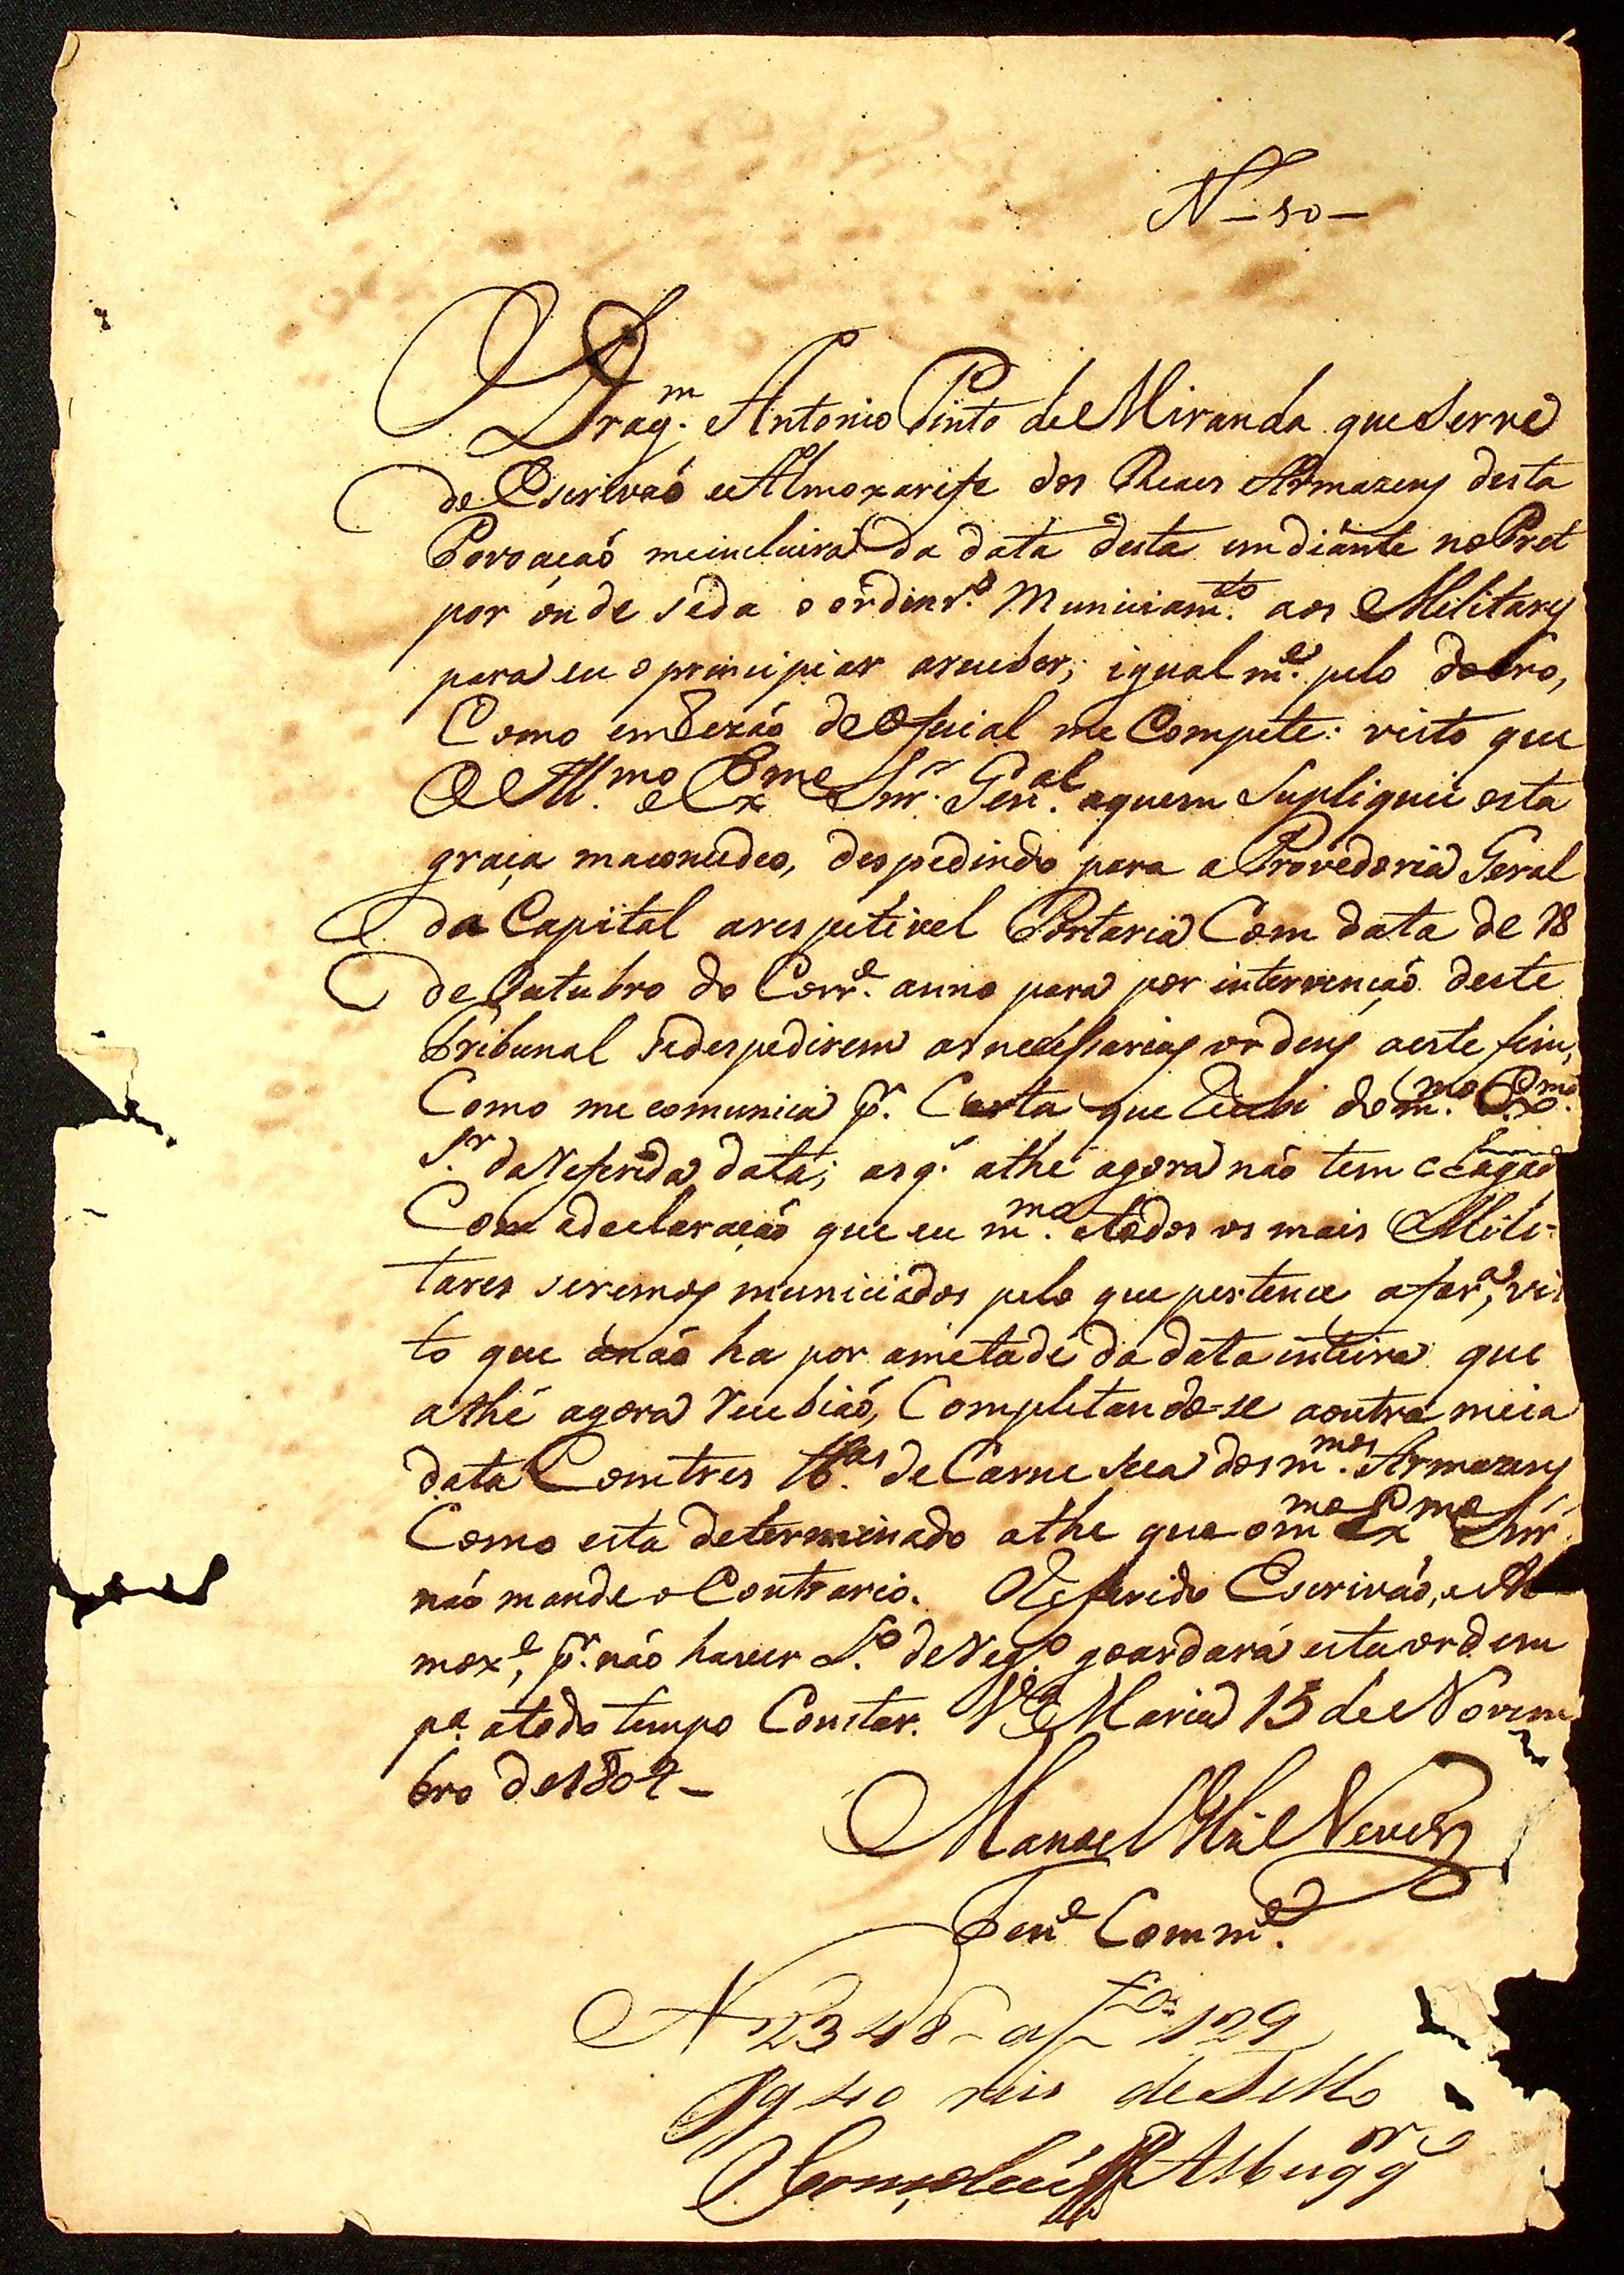 N - 50 -
O Drag.m Antonio Pinto de Miranda que Serve
de Escrivaõ e Almoxarife dos Reaes Armazens desta
Povoaçaõ meincluirá da data desta emdiante noPret
por onde seda o ordinr.o Municiam.to aos Militares
para eu o principiar areceber; igualm.e pelo dobro,
Como emRezaõ deOficial me Compete: visto que
O Ill.mo e Ex.mo Snr. Gen.al aquem Supliquei esta
graça maconcedeo, despedindo para a Provedoria Geral
da Capital arespetivel Portaria Com data de 18
de Outubro do Corr.e anno para por intervençaõ deste
Tribunal sedespedirem asnecessarias ordens aeste fim,
Como me comunica p.r Carta que Recebi dom.mo Ex.mo
S.r daReferida data; as q.' athé agora não tem chegado
Com adeclaraçaõ que eu m.mo etodos os mais Mili-
tares seremos municiados pelo que pertence afar.a, vis
to que anaõ ha por ametade da data inteira que
athé agora Recebiaõ, Completando-se aoutra meia
data Comtres lb.as de Carne seca dos m.mos Armazens
Como esta determinado athe que om.mo Ex.mo Snr.
não mande o Contrario. O Referido Escrivaõ, e Al
mox.e, p.r não haver L.o deReg.o goardará esta ordem
p.a atodo tempo Constar. V.a Maria 15 de Novem
bro de 1802 -
Manoel Neves
Ten.e Comm.e
N 2348 - af 129
Pg 40 reis deSello